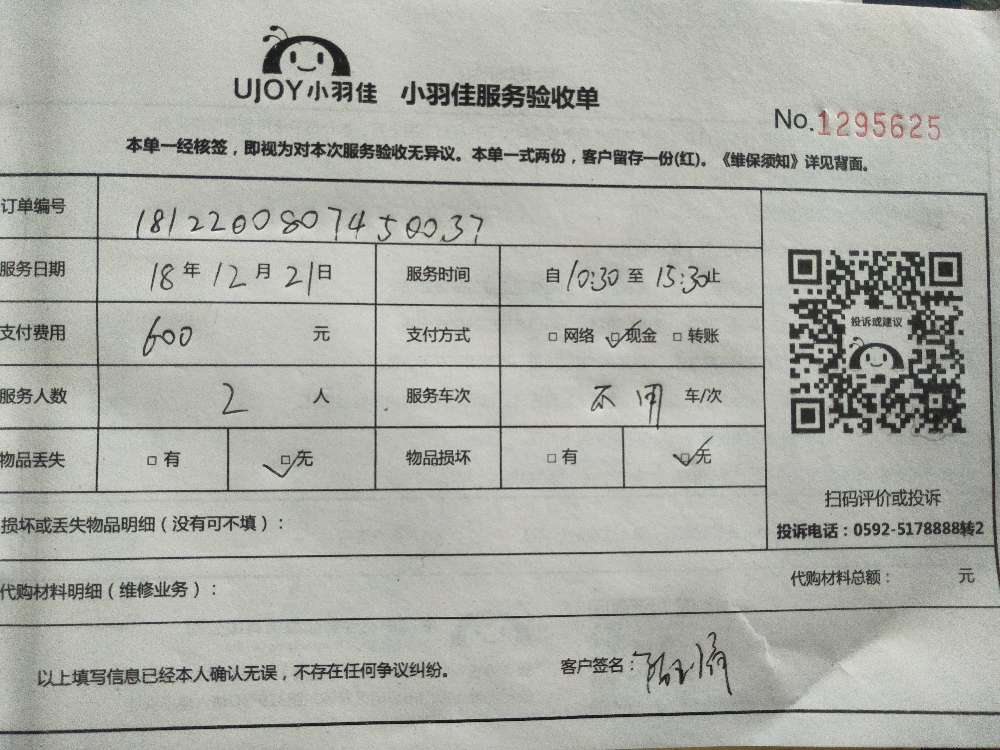 UJOY小羽佳 小羽佳服务验收单
No.1295625
本单一经核签，即视为对本次服务验收无异议。本单一式两份，客户留存一份(红)。《维保须知》详见背面。
订单编号 1812200807450037
服务日期 18年12月21日 服务时间 自10:30至15:30止
支付费用 600 元 支付方式 □网络 □✓现金 □转账
投诉或建议
服务人数 2 人 服务车次 不用 车/次
物品丢失 □有 □✓无 物品损坏 □有 □✓无
扫码评价或投诉
损坏或丢失物品明细（没有可不填）：
投诉电话：0592-5178888转2
代购材料明细（维修业务）：
代购材料总额： 元
以上填写信息已经本人确认无误，不存在任何争议纠纷。
客户签名：